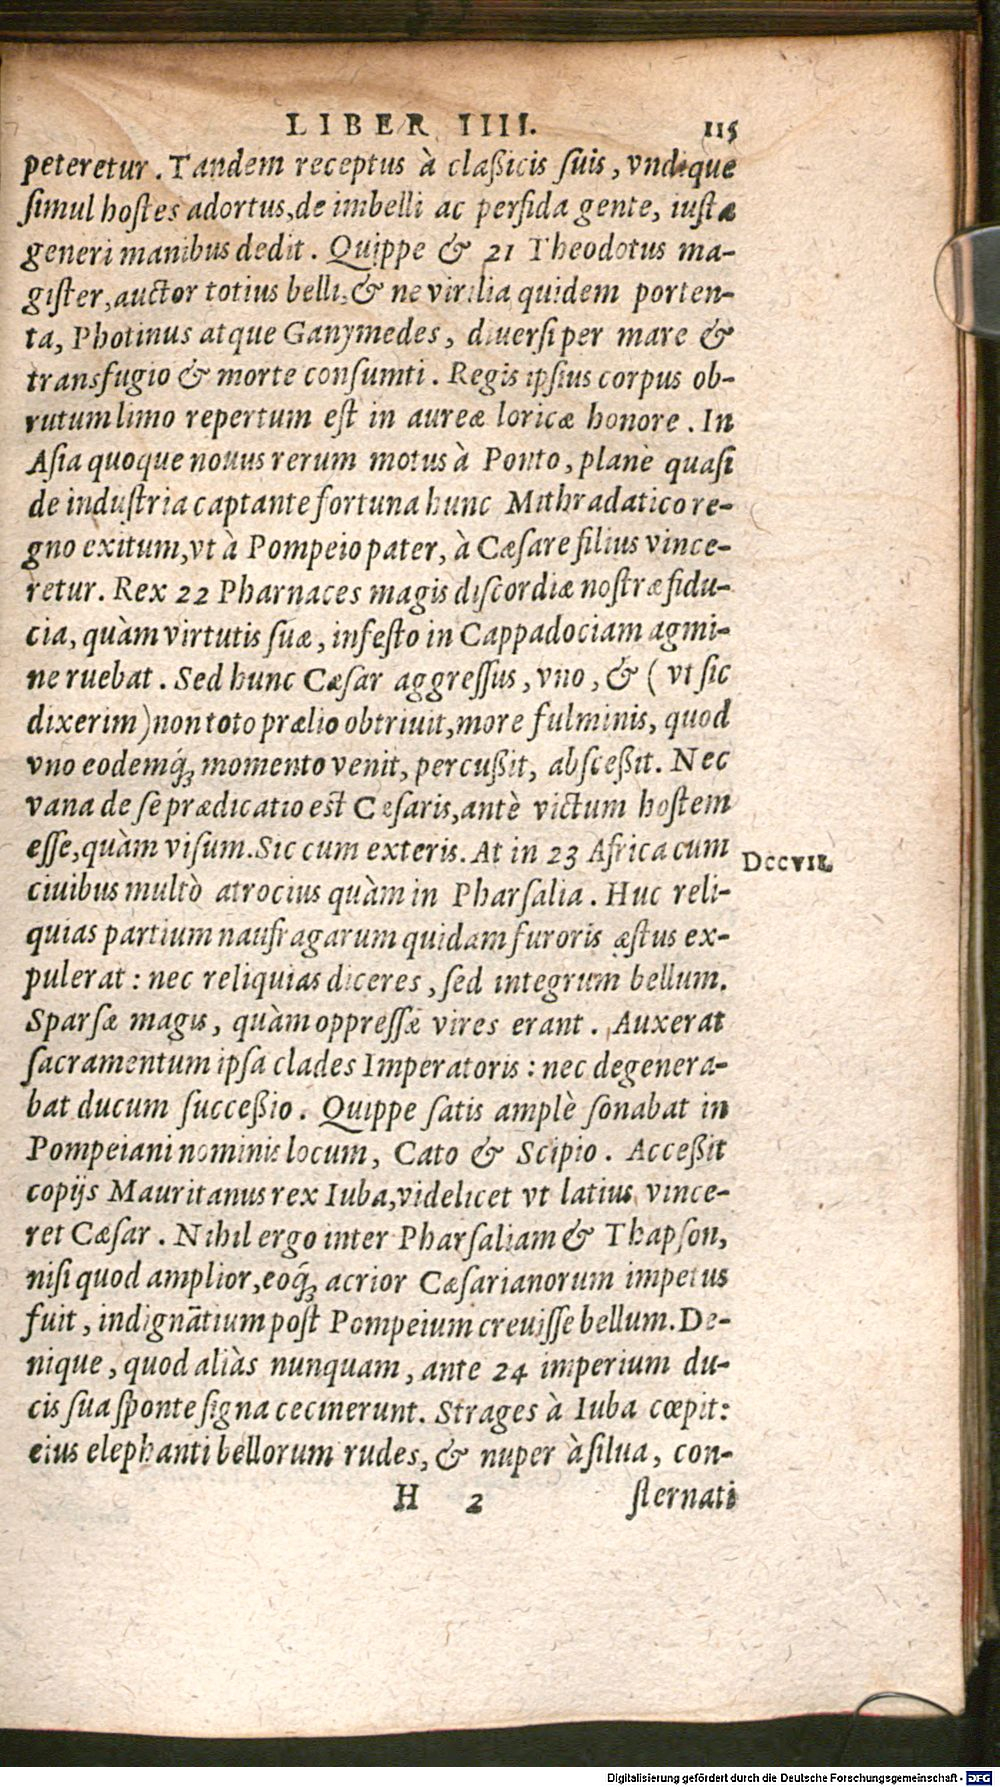 LIBER IIII. 115
peteretur. Tandem receptus à claßicis suis, vndique
simul hostes adortus, de imbelli ac perfida gente, iustæ
generi manibus dedit. Quippe & 21 Theodotus ma-
gister, auctor totius belli, & ne virilia quidem porten-
ta, Photinus atque Ganymedes, diuersi per mare &
transfugio & morte consumti. Regis ipsius corpus ob-
rutum limo repertum est in aureæ loricæ honore. In
Asia quoque nouus rerum motus à Ponto, planè quasi
de industria captante fortuna hunc Mithradatico re-
gno exitum, vt à Pompeio pater, à Cæsare filius vince-
retur. Rex 22 Pharnaces magis discordiæ nostræ fidu-
cia, quàm virtutis suæ, infesto in Cappadociam agmi-
ne ruebat. Sed hunc Cæsar aggressus, vno, & ( vt sic
dixerim) non toto prælio obtriuit, more fulminis, quod
vno eodemq́; momento venit, percußit, absceßit. Nec
vana de se prædicatio est Cæsaris, antè victum hostem
esse, quàm visum. Sic cum exteris. At in 23 Africa cum
ciuibus multò atrocius quàm in Pharsalia. Huc reli-
DCCVII.
quias partium naufragarum quidam furoris æstus ex-
pulerat: nec reliquias diceres, sed integrum bellum.
Sparsæ magis, quàm oppressæ vires erant. Auxerat
sacramentum ipsa clades Imperatoris: nec degenera-
bat ducum succeßio. Quippe satis amplè sonabat in
Pompeiani nominis locum, Cato & Scipio. Acceßit
copijs Mauritanus rex Iuba, videlicet vt latius vince-
ret Cæsar. Nihil ergo inter Pharsaliam & Thapson,
nisi quod amplior, eoq́; acrior Cæsarianorum impetus
fuit, indignãtium post Pompeium creuisse bellum. De-
nique, quod aliàs nunquam, ante 24 imperium du-
cis sua sponte signa cecinerunt. Strages à Iuba cœpit:
eius elephanti bellorum rudes, & nuper à silua, con-
H 2 sternati
Digitalisierung gefördert durch die Deutsche Forschungsgemeinschaft - DFG